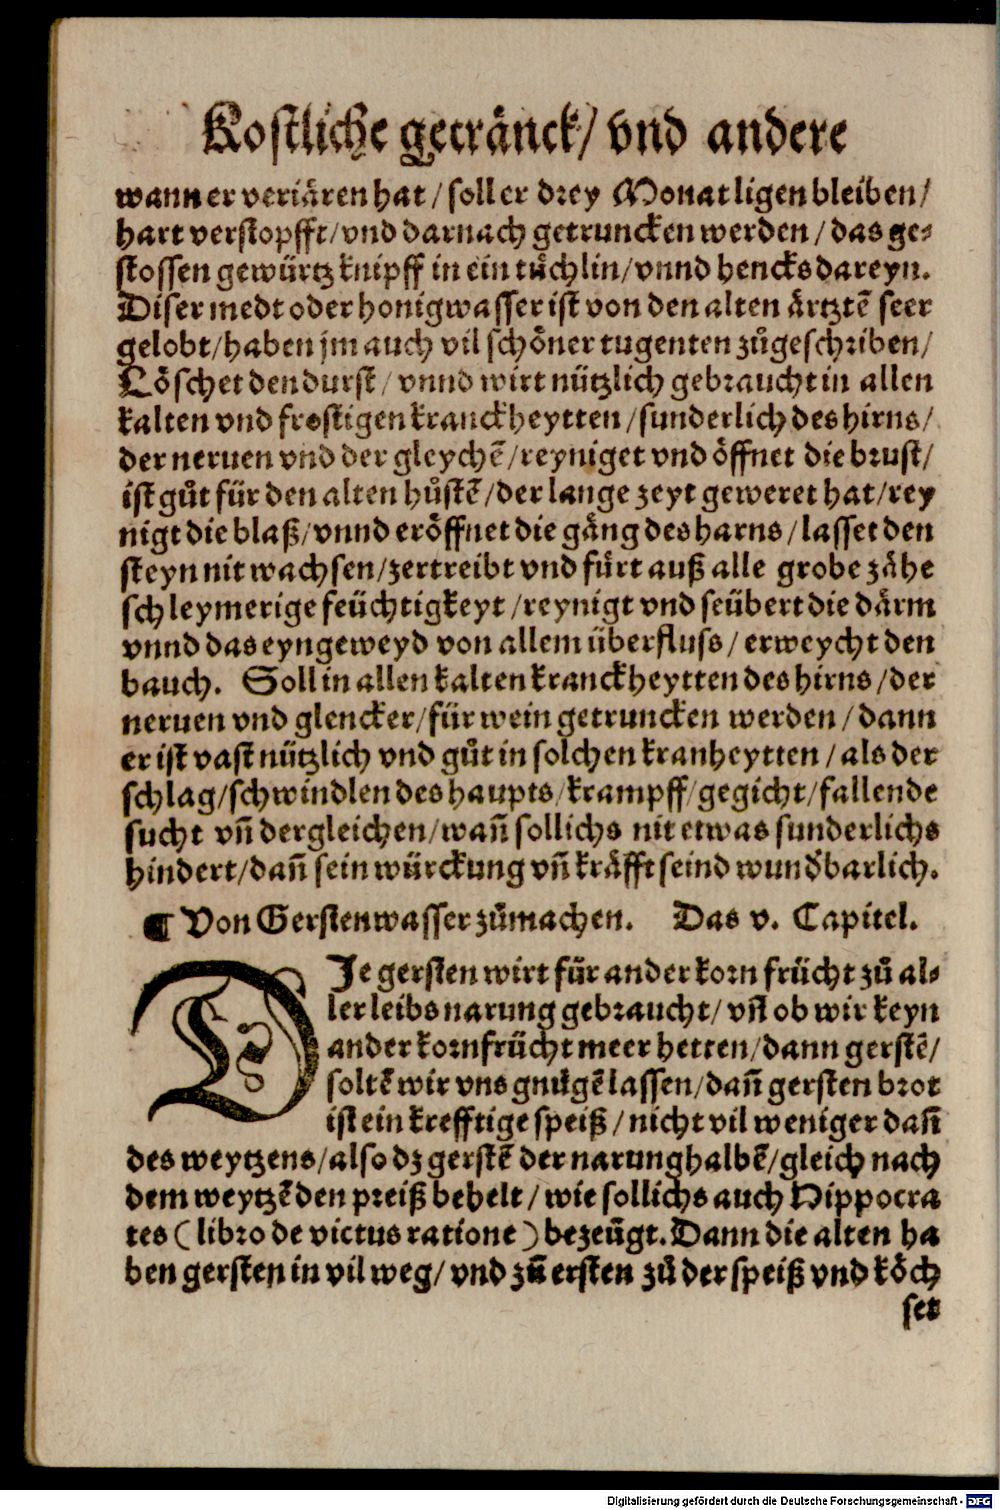 Kostliche getränck/ vnd andere
wann er veriären hat/ soll er drey Monat ligen bleiben/
hart verstopfft/ vnd darnach getruncken werden/ das ge-
stossen gewürtz knipff in ein tüchlin/ vnnd hencks dareyn.
Diser medt oder honigwasser ist von den alten ärtztē seer
gelobt/ haben jm auch vil schöner tugenten zůgeschriben/
Löschet den durst/ vnnd wirt nützlich gebraucht in allen
kalten vnd frostigen kranckheytten/ sunderlich des hirns/
der neruen vnd der gleychē/ reyniget vnd öffnet die brust/
ist gůt für den alten hůstē/ der lange zeyt geweret hat/ rey
nigt die blaß/ vnnd eröffnet die gäng des harns/ lasset den
steyn nit wachsen/ zertreibt vnd fürt auß alle grobe zähe
schleymerige feüchtigkeyt/ reynigt vnd seübert die därm
vnnd das eyngeweyd von allem überfluss/ erweycht den
bauch. Soll in allen kalten kranckheytten des hirns/ der
neruen vnd glencker/ für wein getruncken werden/ dann
er ist vast nützlich vnd gůt in solchen kranheytten/ als der
schlag/ schwindlen des haupts/ krampff/ gegicht/ fallende
sucht vn̄ dergleichen/ wan̄ sollichs nit etwas sunderlichs
hindert/ dan̄ sein würckung vn̄ kräfft seind wund̄barlich.
¶ Von Gerstenwasser zůmachen. Das v. Capitel.
DIe gersten wirt für ander korn frücht zů al-
ler leibs narung gebraucht/ vn̄ ob wir keyn
ander kornfrücht meer hetten/ dann gerstē/
soltē wir vns gnůgē lassen/ dan̄ gersten brot
ist ein krefftige speiß/ nicht vil weniger dan̄
des weytzens/ also dz gerstē der narung halbē/ gleich nach
dem weytzē den preiß behelt/ wie sollichs auch Hippocra
tes (libro de victus ratione) bezeügt. Dann die alten ha
ben gersten in vil weg/ vnd zů ersten zů der speiß vnd köch
set
Digitalisierung gefördert durch die Deutsche Forschungsgemeinschaft - DFG